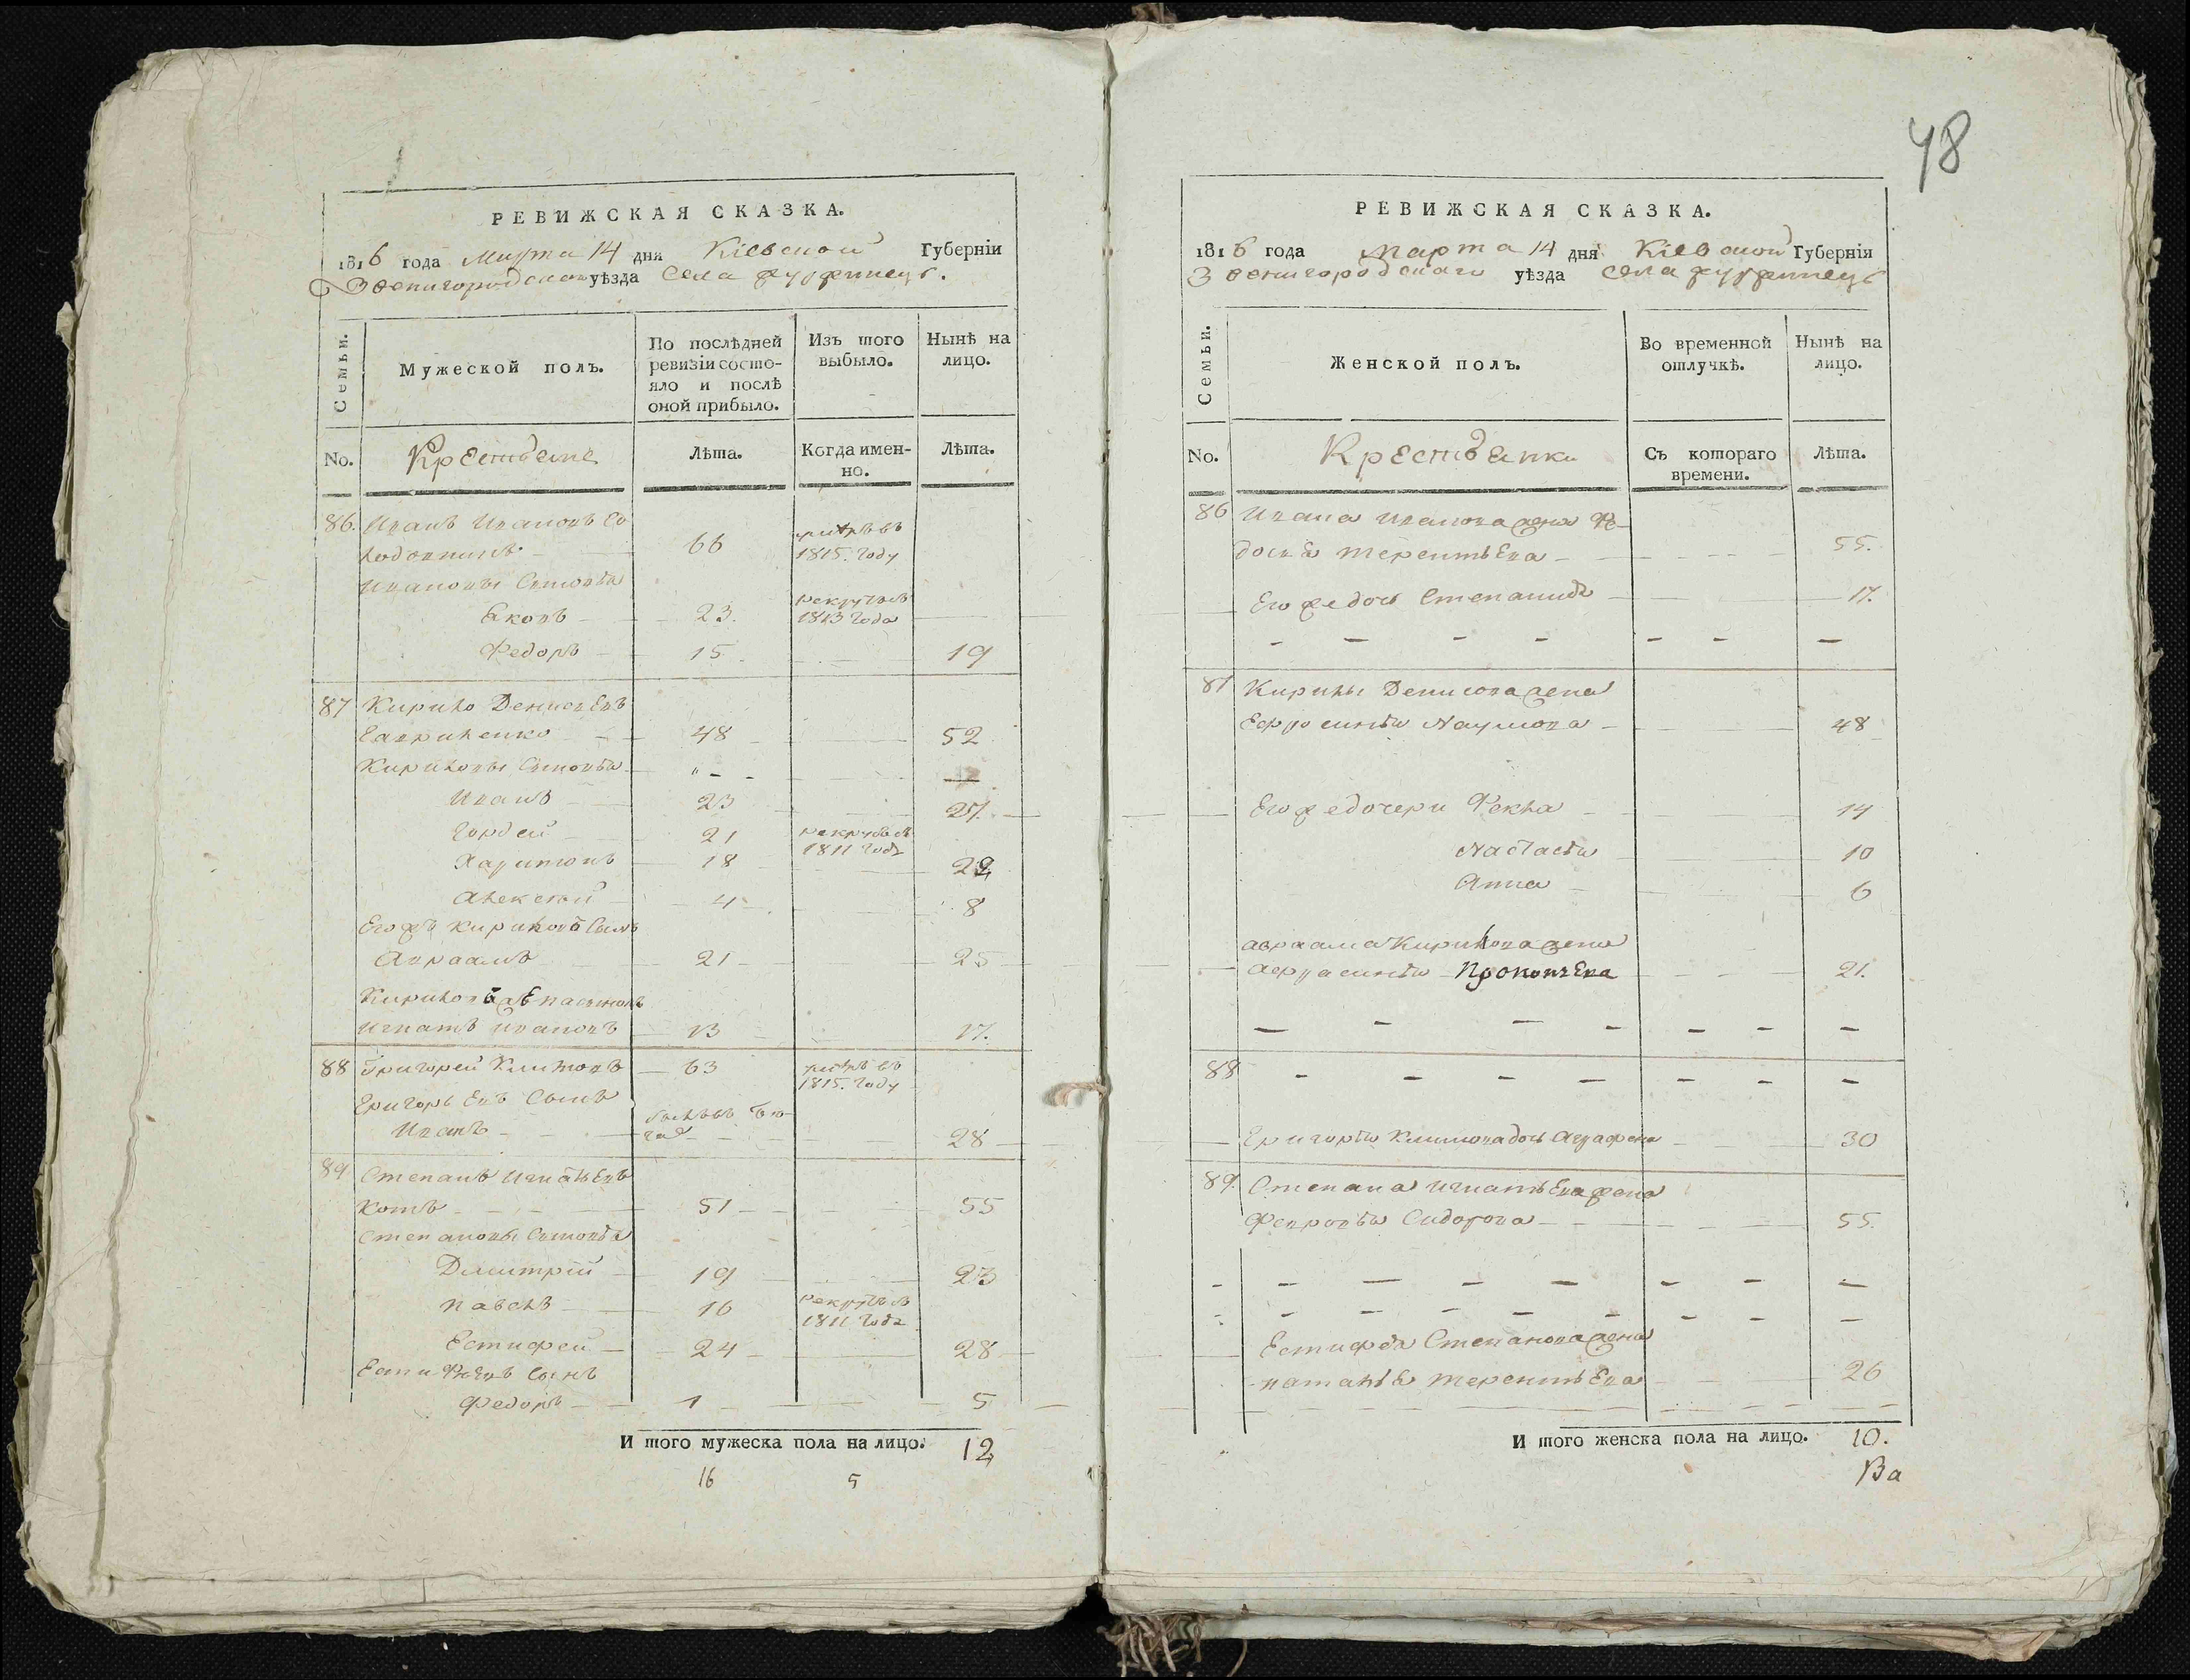 48
РЕВИЖСКАЯ СКАЗКА.
1816 года Марта 14 дня Кіевской Губерніи
Звенигородского уѣзда Села
Семьи.
Мужеской полъ.
По послѣдней ревизіи состояло и послѣ оной прибыло.
Изъ того выбыло.
Нынѣ на лицо.
No.
Крестьяне
Лѣта.
Когда именно.
Лѣта.
86. Иванъ Ивановъ
66 1815. году
Ивановы Сыновья
Яковъ 23. рекрутъ 1813 года
Федоръ 15 19
87 Кирило Денисьевъ
Гавриленко 48 52
Кириловы Сыновья
Иванъ 23 27.
Гордей 21 рекрутъ 1811 года
Харитонъ 18 22
Алексей 4 8
Его жъ Кирилова Сынъ
Авраамъ 21 25
Кирилова
Игнатъ Ивановъ 13 17.
88 Григорей Климовъ 63 1815. году
Григорьевъ Сынъ
Иванъ 28
89 Степанъ Игнатьевъ
Котъ 51 55
Степановы Сыновья
Дмитрій 19 23
Павелъ 16 рекрутъ 1811 года
Естифей 24 28
Естифѣевъ Сынъ
Федоръ 1 5
И того мужеска пола на лицо. 12
16 5
РЕВИЖСКАЯ СКАЗКА.
1816 года Марта 14 дня Кіевской Губерніи
Звенигородскаго уѣзда Села
Семьи.
Женской полъ.
Во временной отлучкѣ.
Нынѣ на лицо.
No.
Крестьянки
Съ котораго времени.
Лѣта.
86 Ивана Иванова жена Фе-
досья Терентьева 55.
Его же дочь Степанида 17.
87 Кирилы Денисова жена
Ефросинья Наумова 48
Его же дочери Фекла 14
Настасья 10
Анна 6
Авраама Кирилова жена
Афрасинья Прокопьева 21.
88
Григорья Климова дочь Аграфена 30
89. Степана Игнатьева жена
Февронья Сидорова 55.
Естифея Степанова жена
Наталья Терентьева 26
И того женска пола на лицо. 10.
Ва